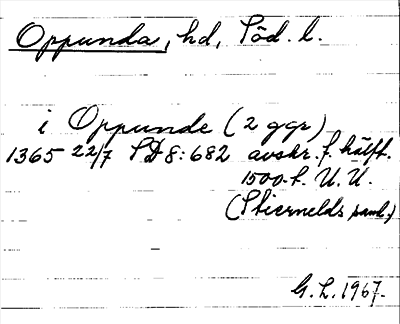 Oppunda, hd, Söd. l.
i Oppunde (2 ggr)
1365 22/7 SD 8:682 avskr. f. hälft.
1500-t. U.U.
(Stiernelds saml.)
G.L. 1967.